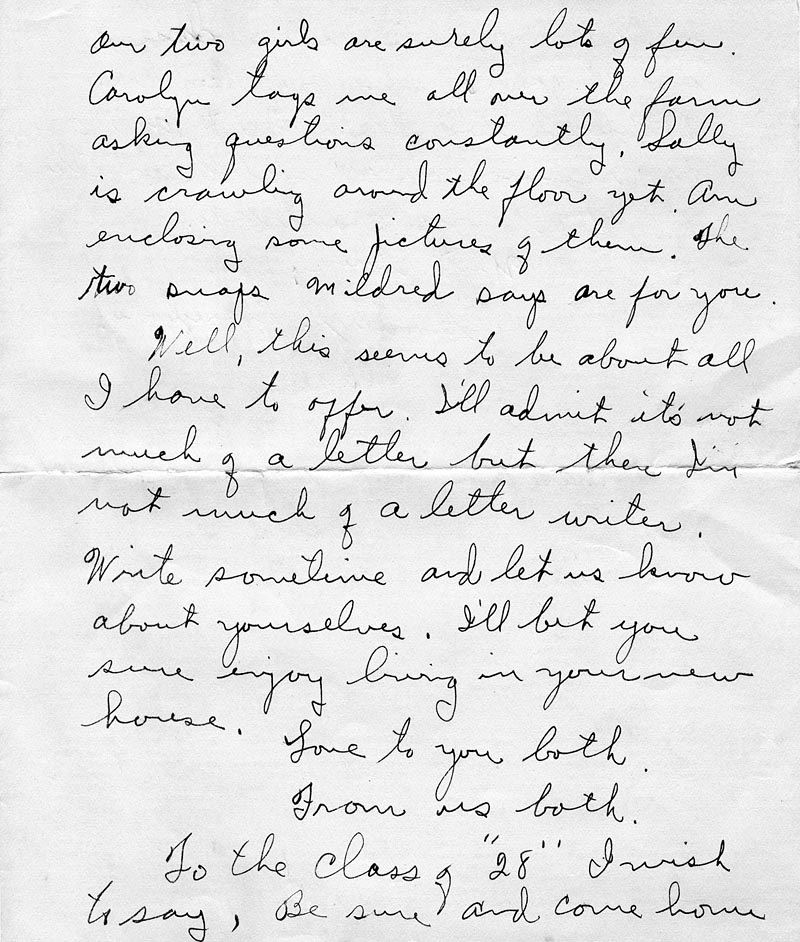 Our two girls are surely lots of fun.
Carolyn tags me all over the farm
asking questions constantly. Sally
is crawling around the floor yet. Am
enclosing some pictures of them. The
two snaps Mildred says are for you.
Well, this seems to be about all
I have to offer. I'll admit it's not
much of a letter but then I'm
not much of a letter writer.
Write sometime and let us know
about yourselves. I'll bet you
sure enjoy living in your new
house.
Love to you both.
From us both.
To the class of "28" I wish
to say, Be sure and come home